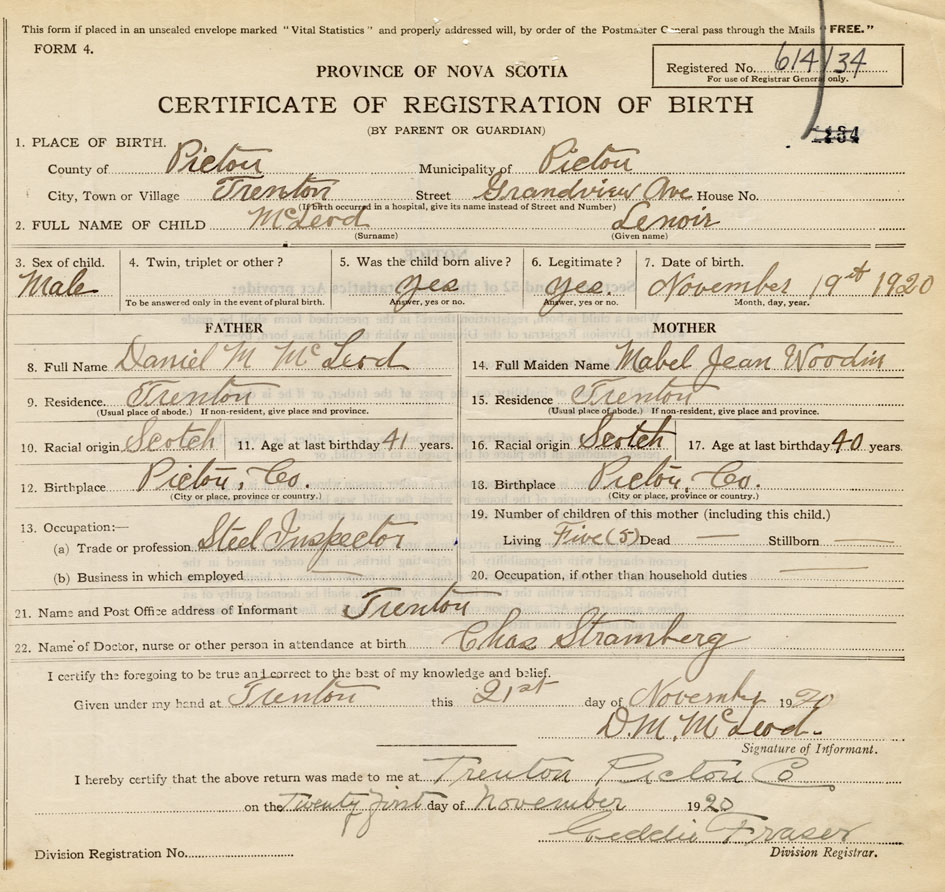 This form if placed in an unsealed envelope marked "Vital Statistics" and properly addressed will, by order of the Postmaster General pass through the Mails "FREE."
FORM 4.
Registered No. 614/34
For use of Registrar General only.
PROVINCE OF NOVA SCOTIA
CERTIFICATE OF REGISTRATION OF BIRTH
(BY PARENT OR GUARDIAN)
1. PLACE OF BIRTH.
County of Pictou Municipality of Pictou
City, Town or Village Trenton Street Grandview Ave House No.
(If birth occurred in a hospital, give its name instead of Street and Number)
2. FULL NAME OF CHILD McLeod Lenoir
(Surname) (Given name)
3. Sex of child. 4. Twin, triplet or other? 5. Was the child born alive? 6. Legitimate? 7. Date of birth.
Male yes yes. November 19st 1920
To be answered only in the event of plural birth. Answer, yes or no. Answer, yes or no. Month, day, year.
FATHER MOTHER
8. Full Name Daniel M McLeod 14. Full Maiden Name Mabel Jean Woodin
9. Residence. Trenton 15. Residence Trenton
(Usual place of abode.) If non-resident, give place and province. (Usual place of abode.) If non-resident, give place and province.
10. Racial origin Scotch 11. Age at last birthday 41 years. 16. Racial origin Scotch 17. Age at last birthday 40 years
12. Birthplace Pictou, Co. 18. Birthplace Pictou, Co.
(City or place, province or country.) (City or place, province or country.)
13. Occupation:— 19. Number of children of this mother (including this child.)
(a) Trade or profession Steel Inspector Living Five (5) Dead — Stillborn —
(b) Business in which employed — 20. Occupation, if other than household duties —
21. Name and Post Office address of Informant Trenton
22. Name of Doctor, nurse or other person in attendance at birth Chas Stramberg
I certify the foregoing to be true and correct to the best of my knowledge and belief.
Given under my hand at Trenton this 21st day of November 1920
D. M. McLeod.
Signature of Informant.
I hereby certify that the above return was made to me at Trenton Pictou Co
on the Twenty first day of November 1920
Geddie Fraser
Division Registrar.
Division Registration No.